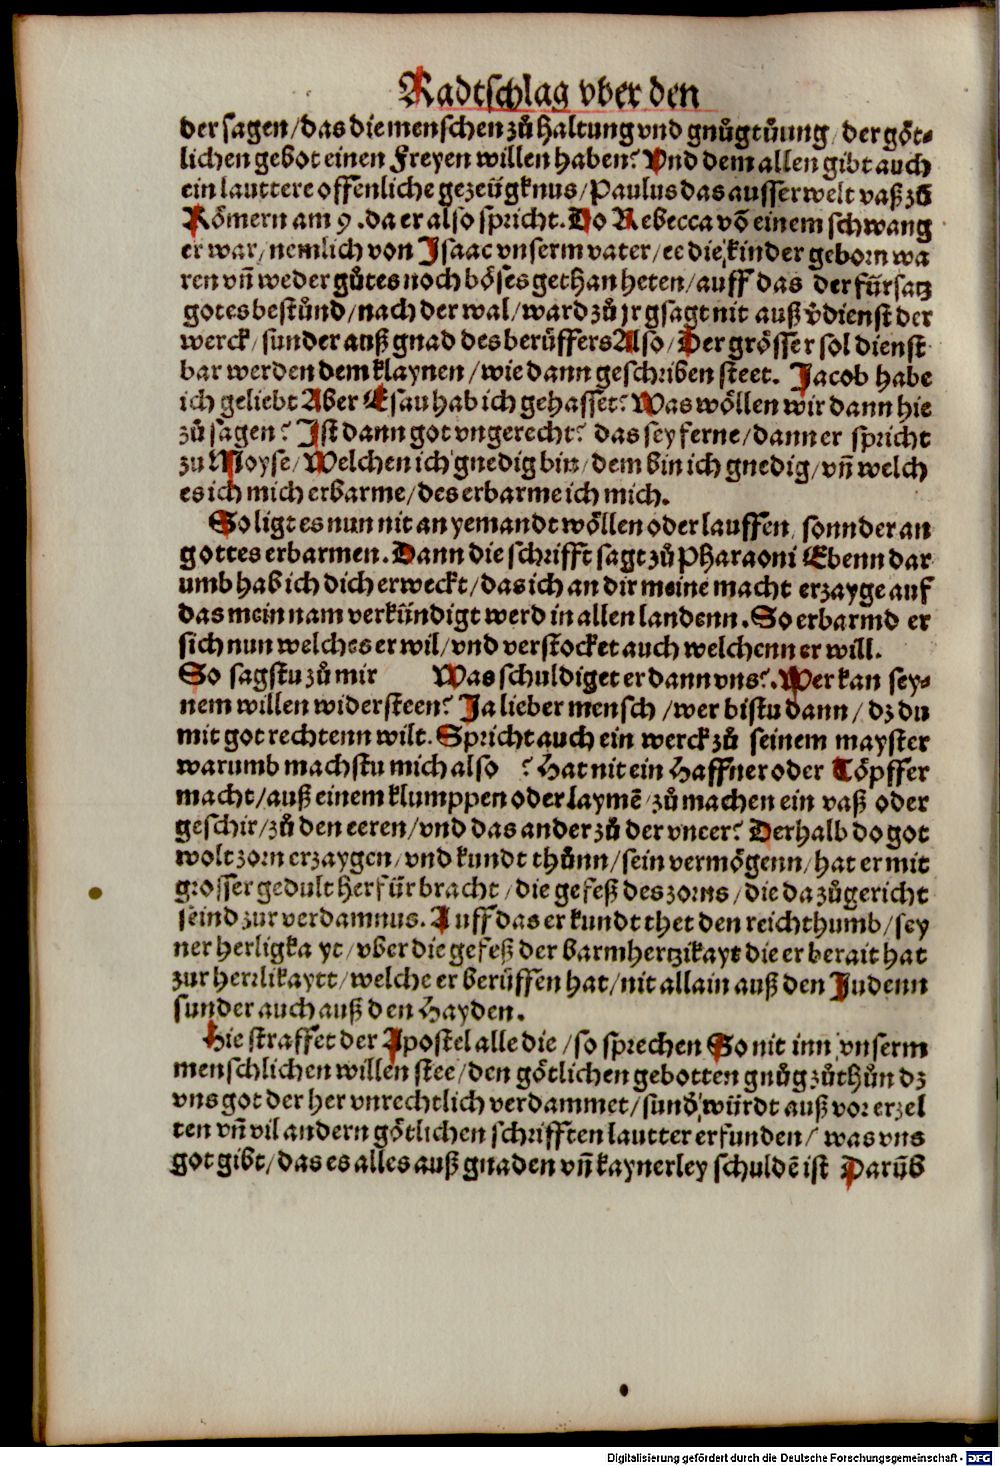 Radtschlag vber den
der sagen/das die menschen zů haltung vnd gnůgtůung/der göt-
lichen gebot einen freyen willen haben? Vnd dem allen gibt auch
ein lauttere offenliche gezeügknus/Paulus das ausserwelt vaß zů
Römern am 9. da er also spricht. Do Rebecca võ einem schwang
er war/nemlich von Isaac vnserm vater/ee die kinder geborn wa
ren vñ weder gůtes noch böses gethan heten/auff das der fürsatz
gotes bestůnd/nach der wal/ward zů jr gsagt nit auß v̊dienst der
werck/sunder auß gnad des berüffers Also/Der grösser sol dienst
bar werden dem klaynen/wie dann geschriben steet. Jacob habe
ich geliebt Aber Esau hab ich gehasset? Was wöllen wir dann hie
zů sagen? Ist dann got vngerecht? das sey ferne/dann er spricht
zu Moyse/Welchen ich gnedig bin/dem bin ich gnedig/vñ welch
es ich mich erbarme/des erbarme ich mich.
So ligt es nun nit an yemandt wöllen oder lauffen/sonnder an
gottes erbarmen. Dann die schrifft sagt zů Pharaoni Ebenn dar
umb hab ich dich erweckt/das ich an dir meine macht erzayge auf
das mein nam verkündigt werd in allen landenn. So erbarmd er
sich nun welches er wil/vnd verstocket auch welchenn er will.
So sagstu zů mir Was schuldiget er dann vns?. Wer kan sey-
nem willen widersteen? Ja lieber mensch/wer bistu dann/dz du
mit got rechtenn wilt. Spricht auch ein werck zů seinem mayster
warumb machstu mich also ? Hat nit ein Haffner oder Töpffer
macht/auß einem klumppen oder laymẽ/zů machen ein vaß oder
geschir/zů den eeren/vnd das ander zů der vneer? Derhalb do got
wolt zorn erzaygen/vnd kundt thůnn/sein vermögenn/hat er mit
grosser gedult herfür bracht/die gefeß des zorns/die da zůgericht
seind zur verdamnus. Auff das er kundt thet den reichthumb/sey
ner herligkayt/vber die gefeß der barmhertzikayt die er berait hat
zur herrlikaytt/welche er berüffen hat/nit allain auß den Judenn
sunder auch auß den Hayden.
Hie straffet der Apostel alle die/so sprechen So nit inn vnserm
menschlichen willen stee/den götlichen gebotten gnůg zůthůn dz
vns got der her vnrechtlich verdammet/sund̾ würdt auß vor erzel
ten vñ vil andern götlichen schrifften lautter erfunden/was vns
got gibt/das es alles auß gnaden vñ kaynerley schuldẽ ist Darũb
Digitalisierung gefördert durch die Deutsche Forschungsgemeinschaft - DFG